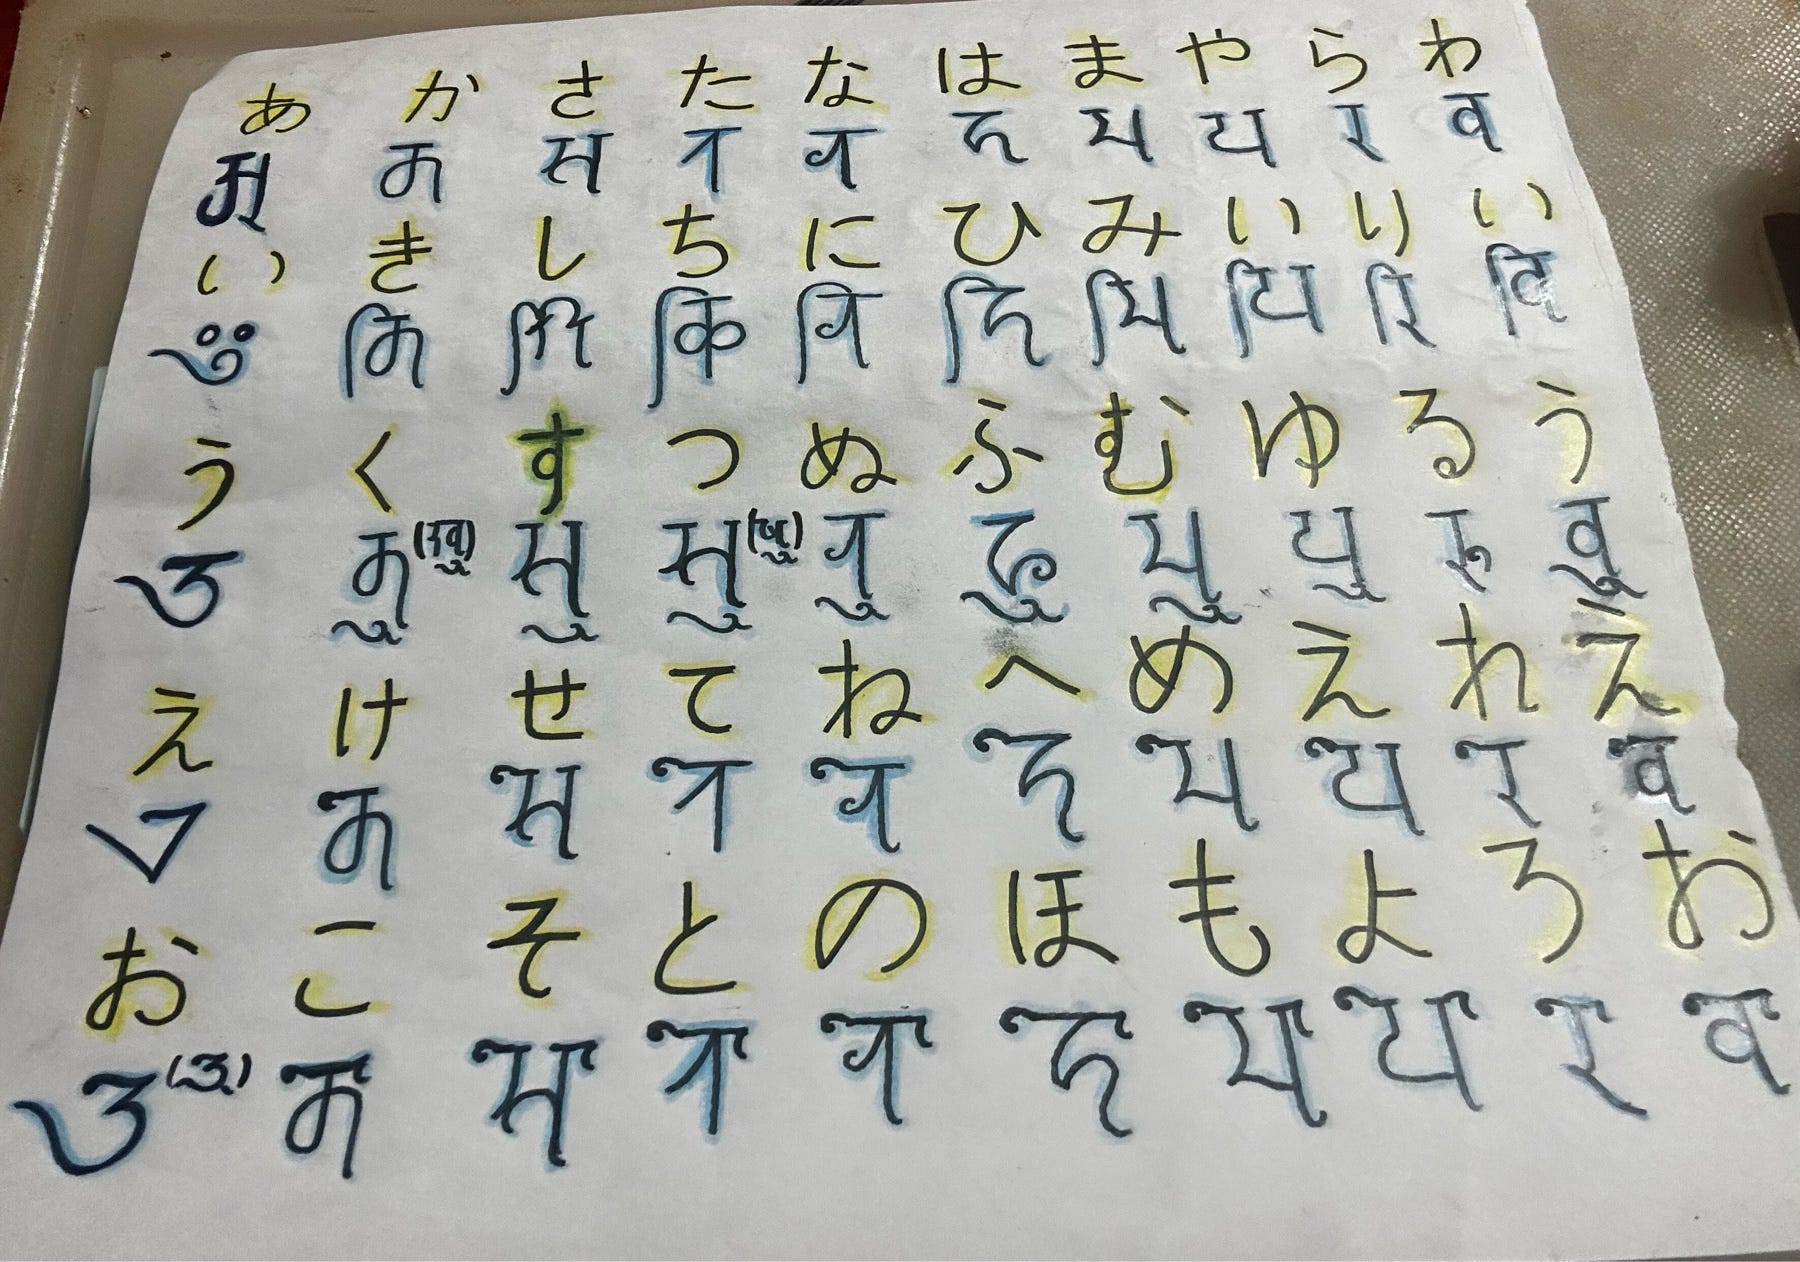 あ か さ た な は ま や ら わ
𑖀 𑖎 𑖭 𑖝 𑖡 𑖮 𑖦 𑖧 𑖨 𑖪
い き し ち に ひ み い り い
𑖂 𑖎𑖰 𑖫𑖰 𑖓𑖰 𑖡𑖰 𑖮𑖰 𑖦𑖰 𑖧𑖰 𑖨𑖰 𑖪𑖰
う く す つ ぬ ふ む ゆ る う
𑖄 𑖎𑖲 𑖭𑖲 𑖭𑖲 𑖡𑖲 𑖮𑖲 𑖦𑖲 𑖧𑖲 𑖨𑖲 𑖪𑖲
え け せ て ね へ め え れ え
𑖊 𑖎𑖸 𑖭𑖸 𑖝𑖸 𑖡𑖸 𑖮𑖸 𑖦𑖸 𑖧𑖸 𑖨𑖸 𑖪𑖸
お こ そ と の ほ も よ ろ お
𑖌 𑖎𑖺 𑖭𑖺 𑖝𑖺 𑖡𑖺 𑖮𑖺 𑖦𑖺 𑖧𑖺 𑖨𑖺 𑖪𑖺